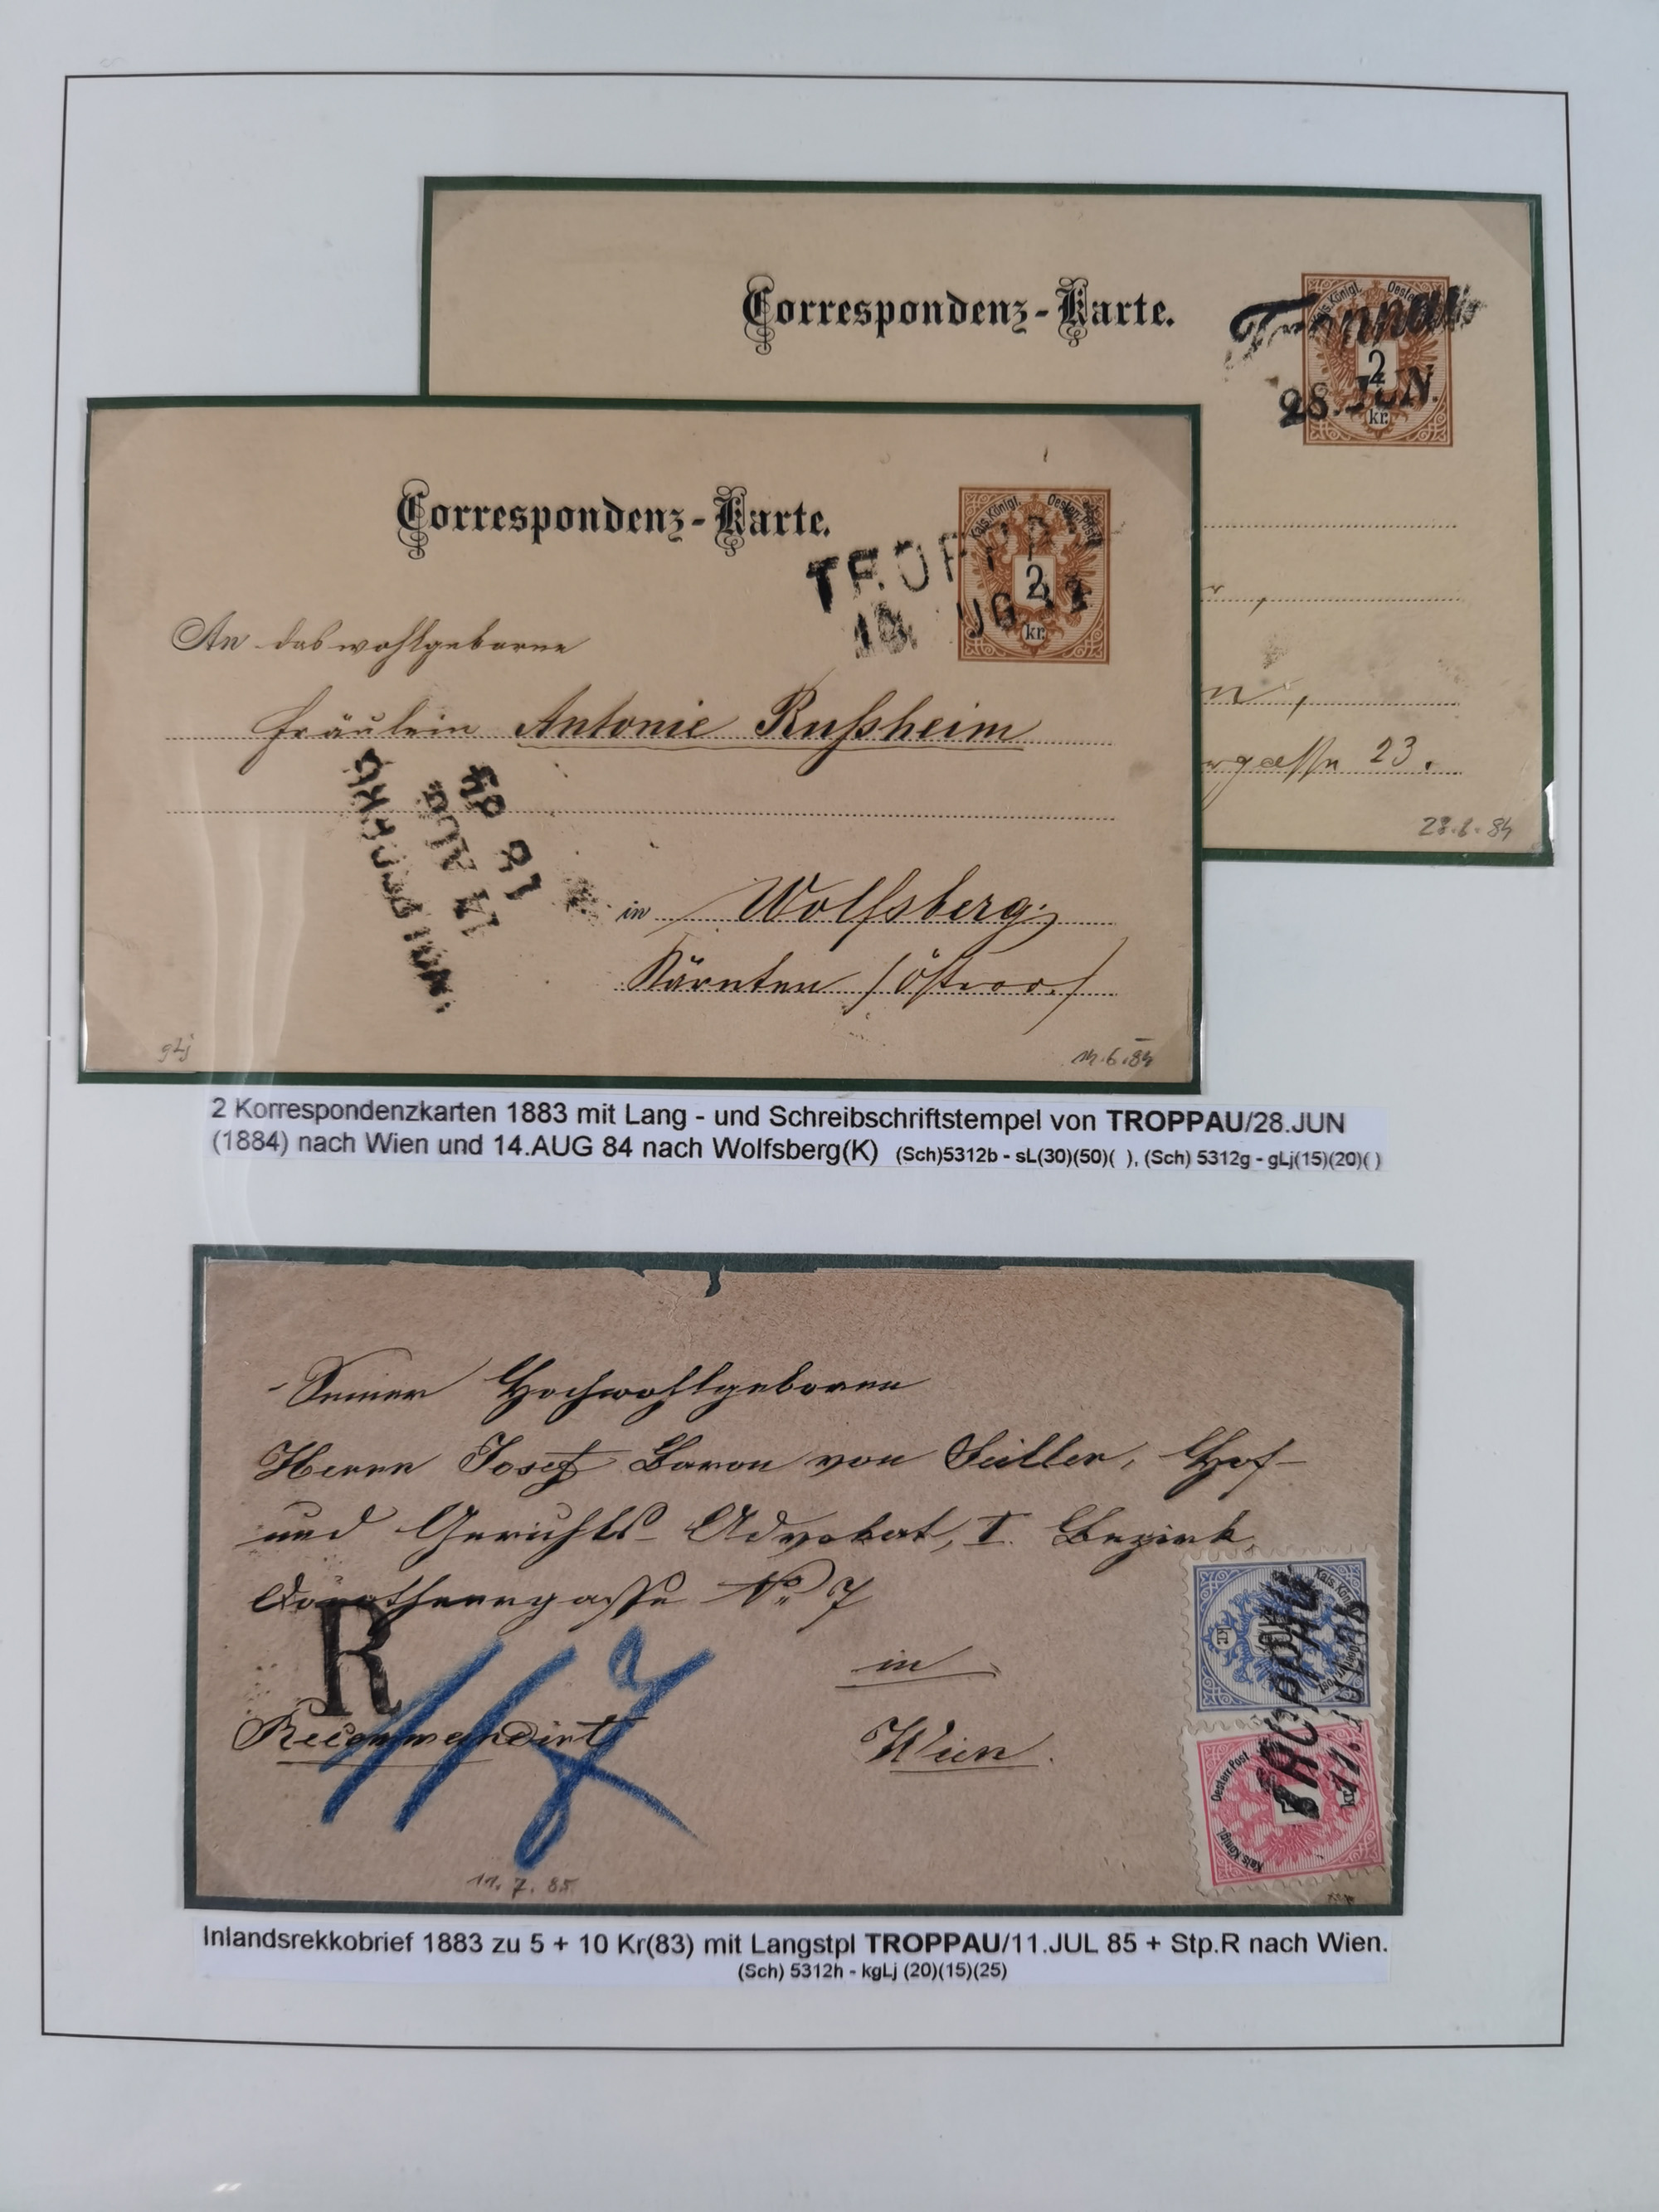 Correspondenz-Karte.
Kais. Königl. Oesterr. Post
Troppau
2
28. JUN.
kr.
gasse 23.
28.6.84
Correspondenz-Karte.
Kais. Königl. Oesterr. Post
TROPPAU
2
kr.
An das wohlgeborne
Fräulein Antonie Rußheim
WOLFSBERG
14 AUG
84
in Wolfsberg,
Kärnten /Österr./
gLj
14.6.84
2 Korrespondenzkarten 1883 mit Lang - und Schreibschriftstempel von TROPPAU/28.JUN
(1884) nach Wien und 14.AUG 84 nach Wolfsberg(K) (Sch)5312b - sL(30)(50)( ), (Sch) 5312g - gLj(15)(20)( )
Seiner Hochwohlgeboren
Herrn Josef Baron von Seiller, Hof-
und Gerichts-Advokat, I. Bezirk,
Dorotheergasse No 7
R
in
Recommandirt
Wien.
117
TROPPAU
11. JUL 85
Kais. Königl. Oesterr. Post
kr.
11.7.85
Inlandsrekkobrief 1883 zu 5 + 10 Kr(83) mit Langstpl TROPPAU/11.JUL 85 + Stp.R nach Wien.
(Sch) 5312h - kgLj (20)(15)(25)